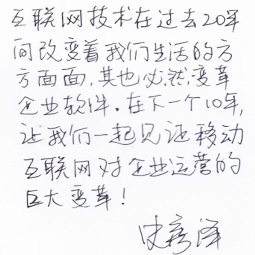 互联网技术在过去20年
间改变着我们生活的方
方面面,其也必然变革
企业软件.在下一个10年,
让我们一起见证移动
互联网对企业运营的
巨大变革!
史彦泽